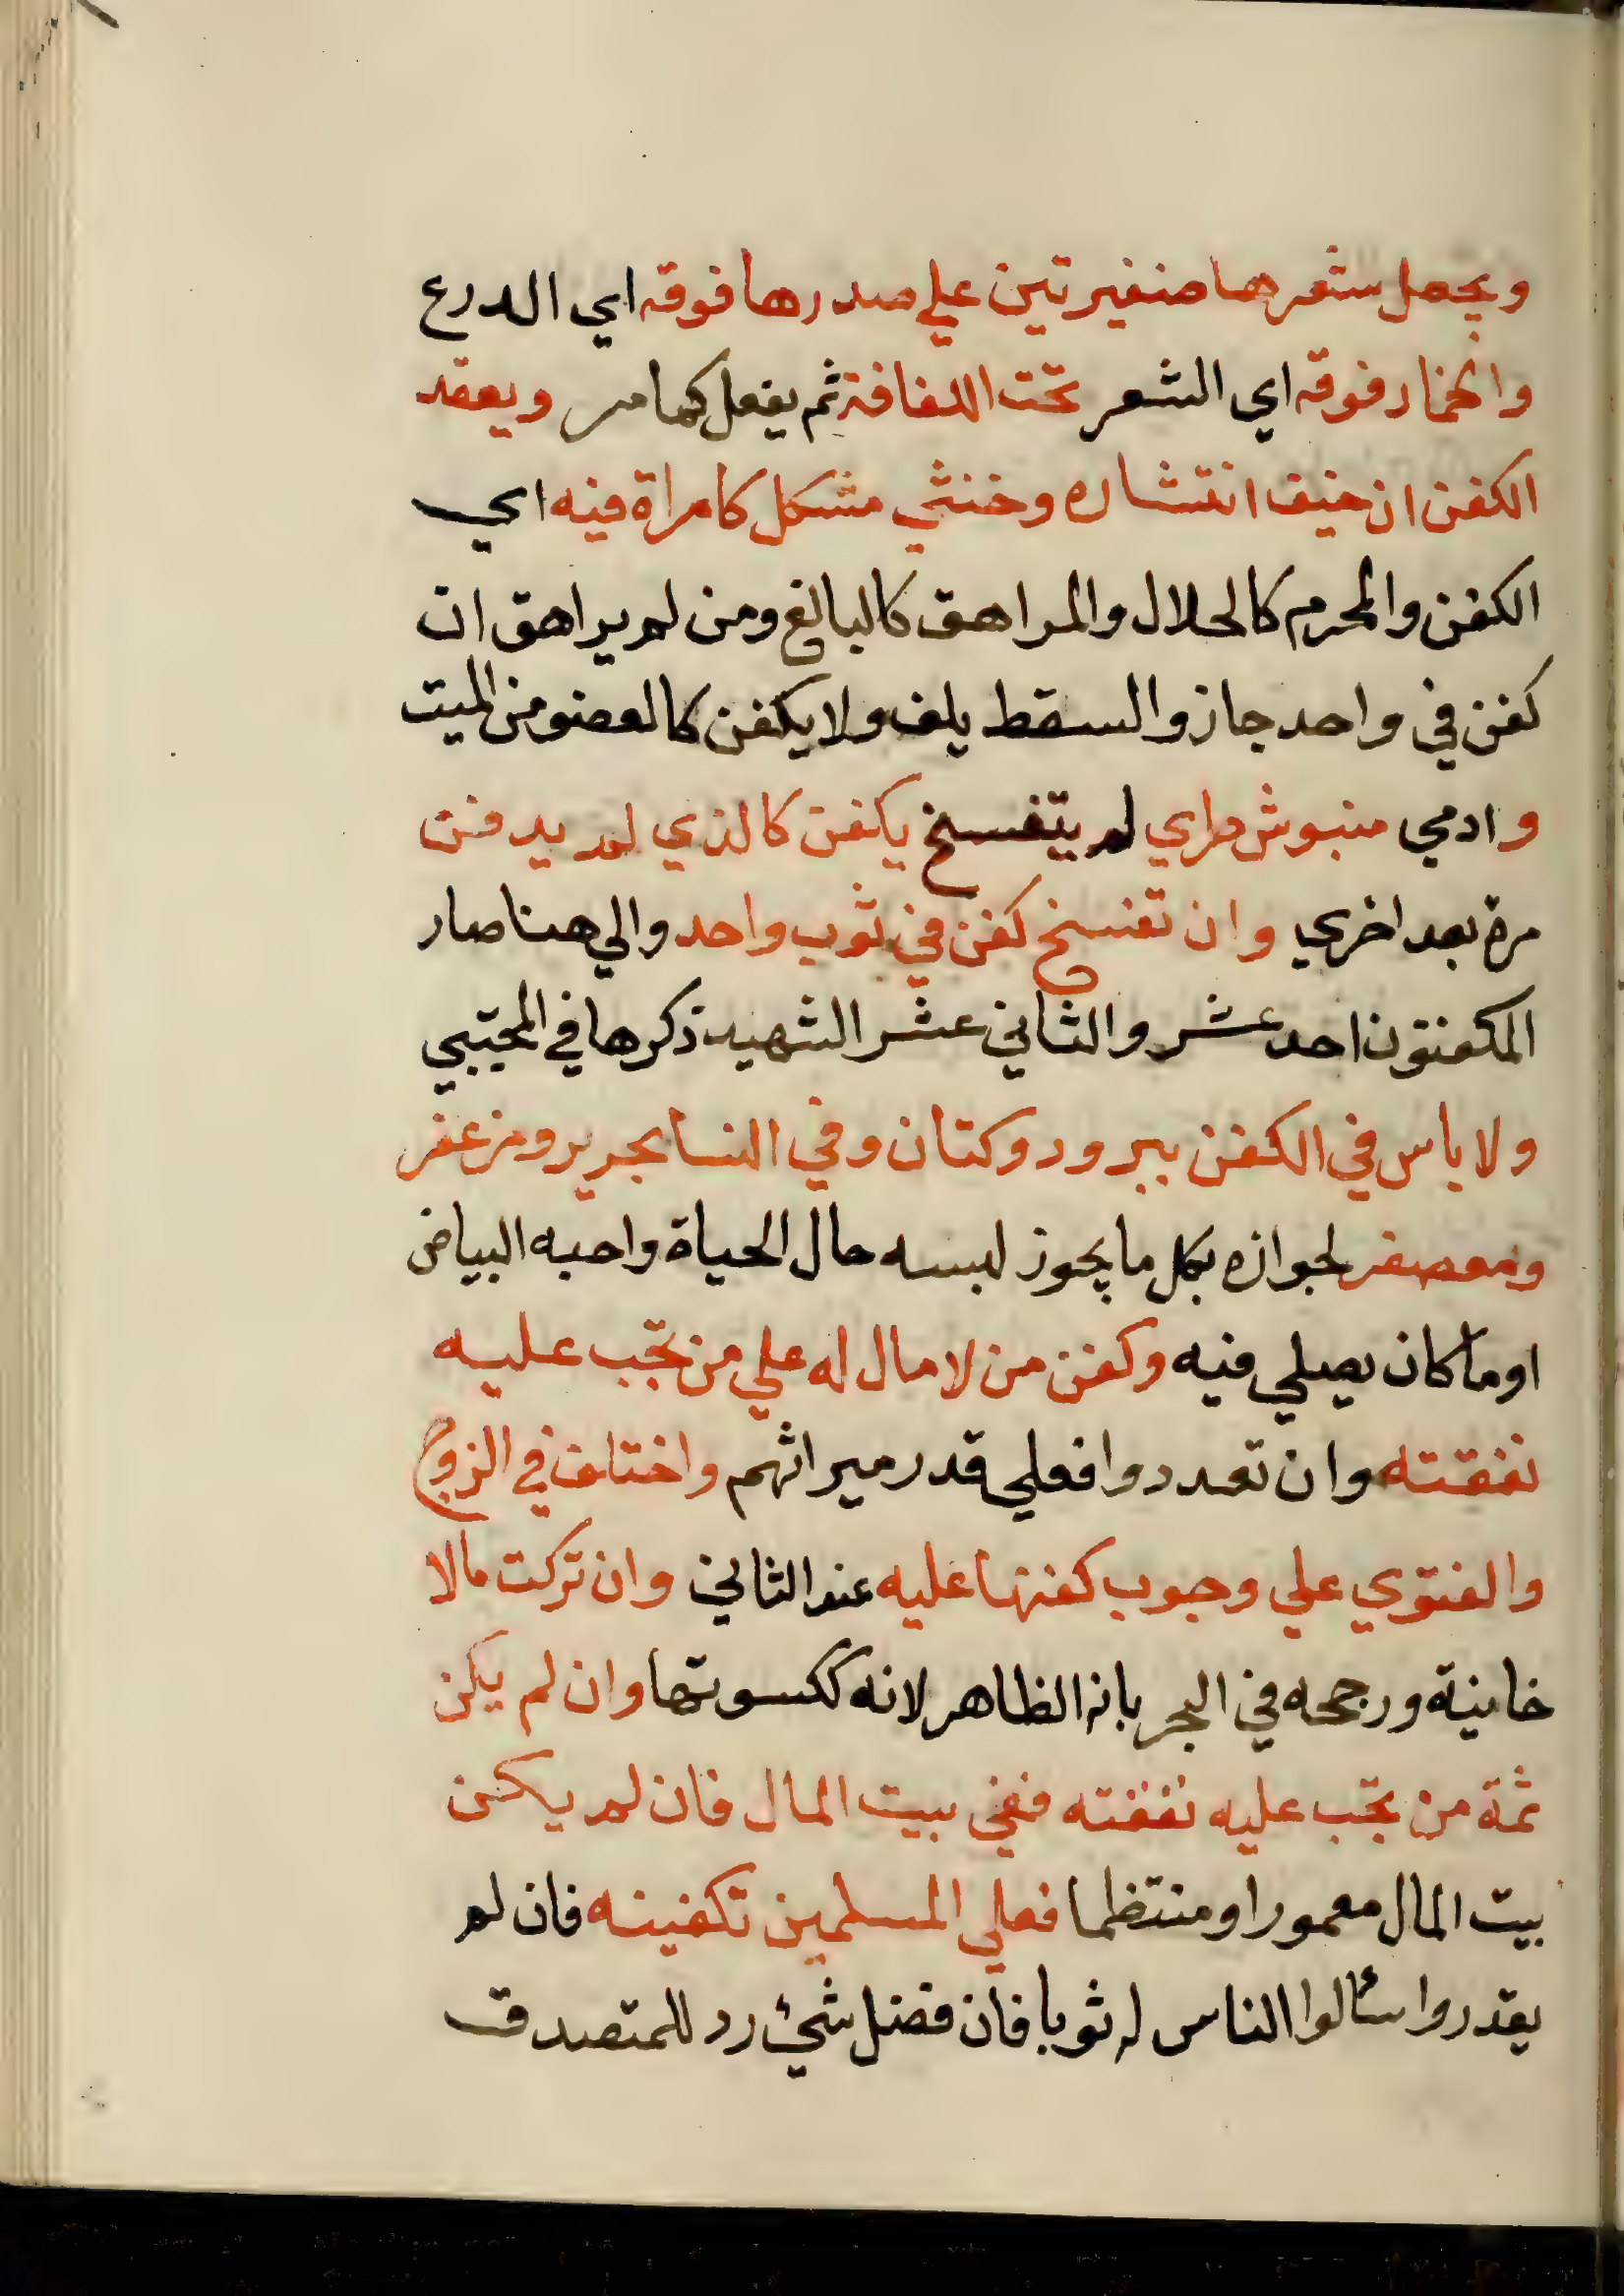 ويجعل شعرها ضفيرتين علي صدرها فوقه اي الدرع
والخمار فوقه اي الشعر تحت اللفافة ثم يفعل كما مر ويعقد
الكفن ان خيف انتشاره وخنثي مشكل كامراة فيه اي
الكفن والمحرم كالحلال والمراهق كالبالغ ومن لم يراهق ان
كفن في واحد جاز والسقط يلف ولا يكفن كالعضو من الميت
وادمي منبوش طري لم يتفسخ يكفن كالذي لم يدفن
مرة بعد اخري وان تفسخ كفن في ثوب واحد والي هنا صار
المكفنون احد عشر والثاني عشر الشهيد ذكرها في المجتبي
ولا باس في الكفن ببرود وكتان وفي النسا بحرير ومزعفر
ومعصفر لجوازه بكل ما يجوز لبسه حال الحياة واحبه البياض
او ما كان يصلي فيه وكفن من لا مال له علي من تجب عليه
نفقته وان تعددوا فعلي قدر ميراثهم واختلف في الزوج
والفتوي علي وجوب كفنها عليه عند الثاني وان تركت مالا
خانية ورجحه في البحر بانه الظاهر لانه ككسوتها وان لم يكن
ثمة من تجب عليه نفقته ففي بيت المال فان لم يكن
بيت المال معمورا او منتظما فعلي المسلمين تكفينه فان لم
يقدروا سئالوا الناس له ثوبا فان فضل شيئ رد للمتصدق